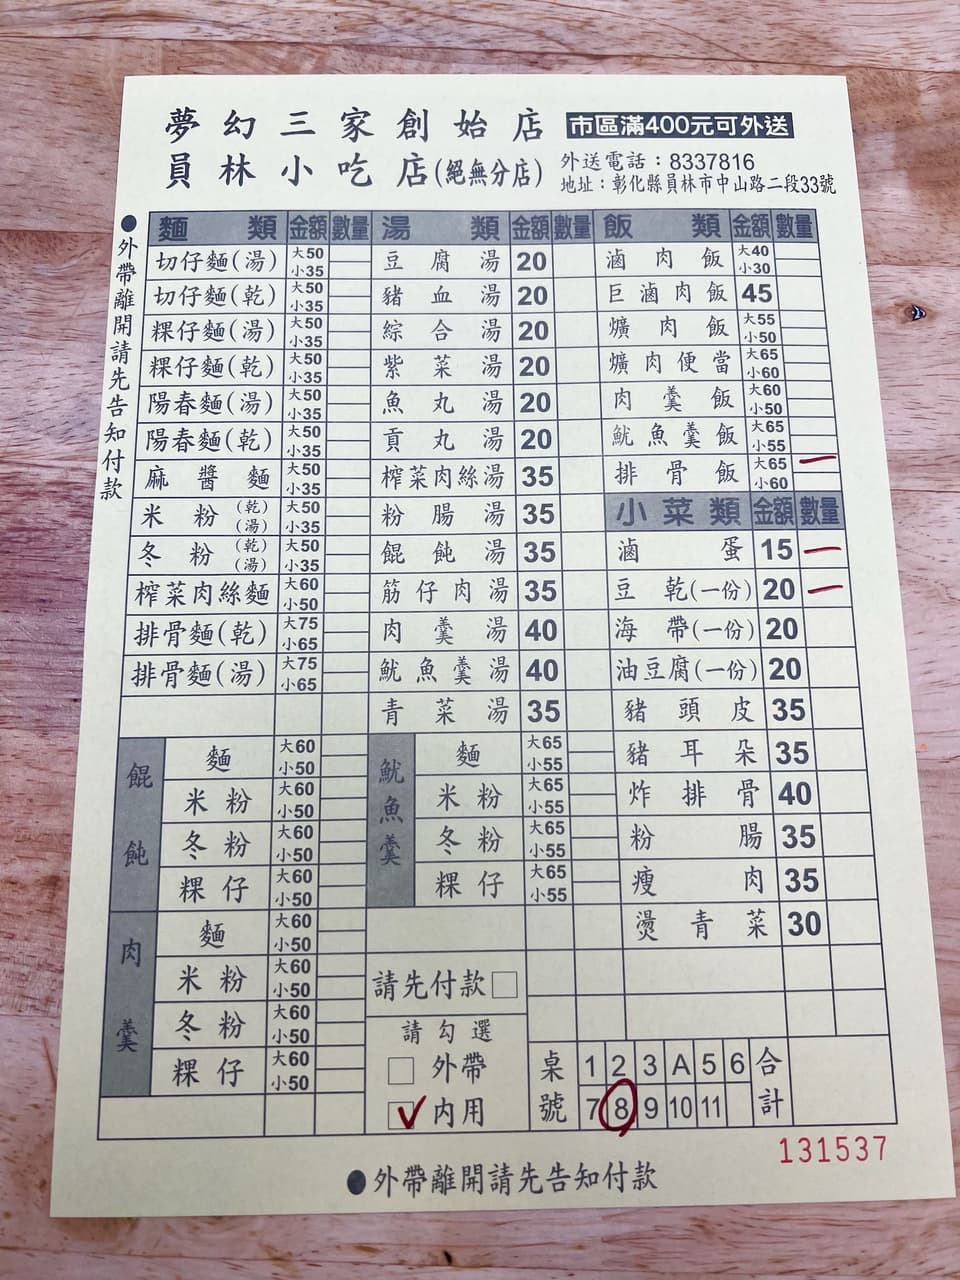 夢幻三家創始店
員林小吃店(絕無分店)
市區滿400元可外送
外送電話：8337816
地址：彰化縣員林市中山路二段33號
●外帶離開請先告知付款
麵類 金額 數量 湯類 金額 數量 飯類 金額 數量
切仔麵(湯) 大50 小35 豆腐湯 20 滷肉飯 大40 小30
切仔麵(乾) 大50 小35 豬血湯 20 巨滷肉飯 45
粿仔麵(湯) 大50 小35 綜合湯 20 爌肉飯 大55 小50
粿仔麵(乾) 大50 小35 紫菜湯 20 爌肉便當 大65 小60
陽春麵(湯) 大50 小35 魚丸湯 20 肉羹飯 大60 小50
陽春麵(乾) 大50 小35 貢丸湯 20 魷魚羹飯 大65 小55
麻醬麵 大50 小35 榨菜肉絲湯 35 排骨飯 大65 小60 一
米粉(乾)(湯) 大50 小35 粉腸湯 35 小菜類 金額 數量
冬粉(乾)(湯) 大50 小35 餛飩湯 35 滷蛋 15 一
榨菜肉絲麵 大60 小50 筋仔肉湯 35 豆乾(一份) 20 一
排骨麵(乾) 大75 小65 肉羹湯 40 海帶(一份) 20
排骨麵(湯) 大75 小65 魷魚羹湯 40 油豆腐(一份) 20
青菜湯 35 豬頭皮 35
餛飩 麵 大60 小50 魷魚羹 麵 大65 小55 豬耳朵 35
米粉 大60 小50 米粉 大65 小55 炸排骨 40
冬粉 大60 小50 冬粉 大65 小55 粉腸 35
粿仔 大60 小50 粿仔 大65 小55 瘦肉 35
肉羹 麵 大60 小50 燙青菜 30
米粉 大60 小50 請先付款□
冬粉 大60 小50 請勾選
粿仔 大60 小50 □外帶
☑內用
桌號 1 2 3 A 5 6 合計
7 8 9 10 11
131537
●外帶離開請先告知付款